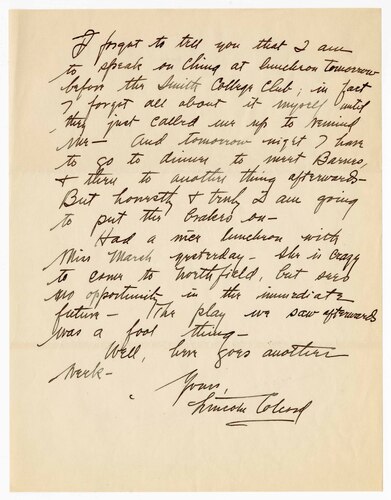 I forgot to tell you that I am
to speak on China at luncheon tomorrow
before the Smith College Club; in fact
I forgot all about it myself until
they just called me up to remind
me— And tomorrow night I have
to go to dinner to meet Barnes,
& then to another thing afterwards—
But honestly & truly I am going
to put the brakes on—
Had a nice luncheon with
Miss March yesterday— She is crazy
to come to Northfield, but sees
no opportunity in the immediate
future— The play we saw afterwards
was a fool thing—
Well, here goes another
week—
Yours,
Lincoln Colcord